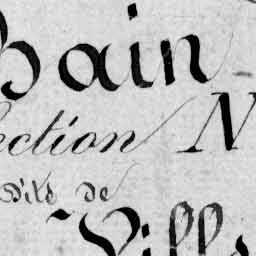 bain
ection N
dite de
Vills